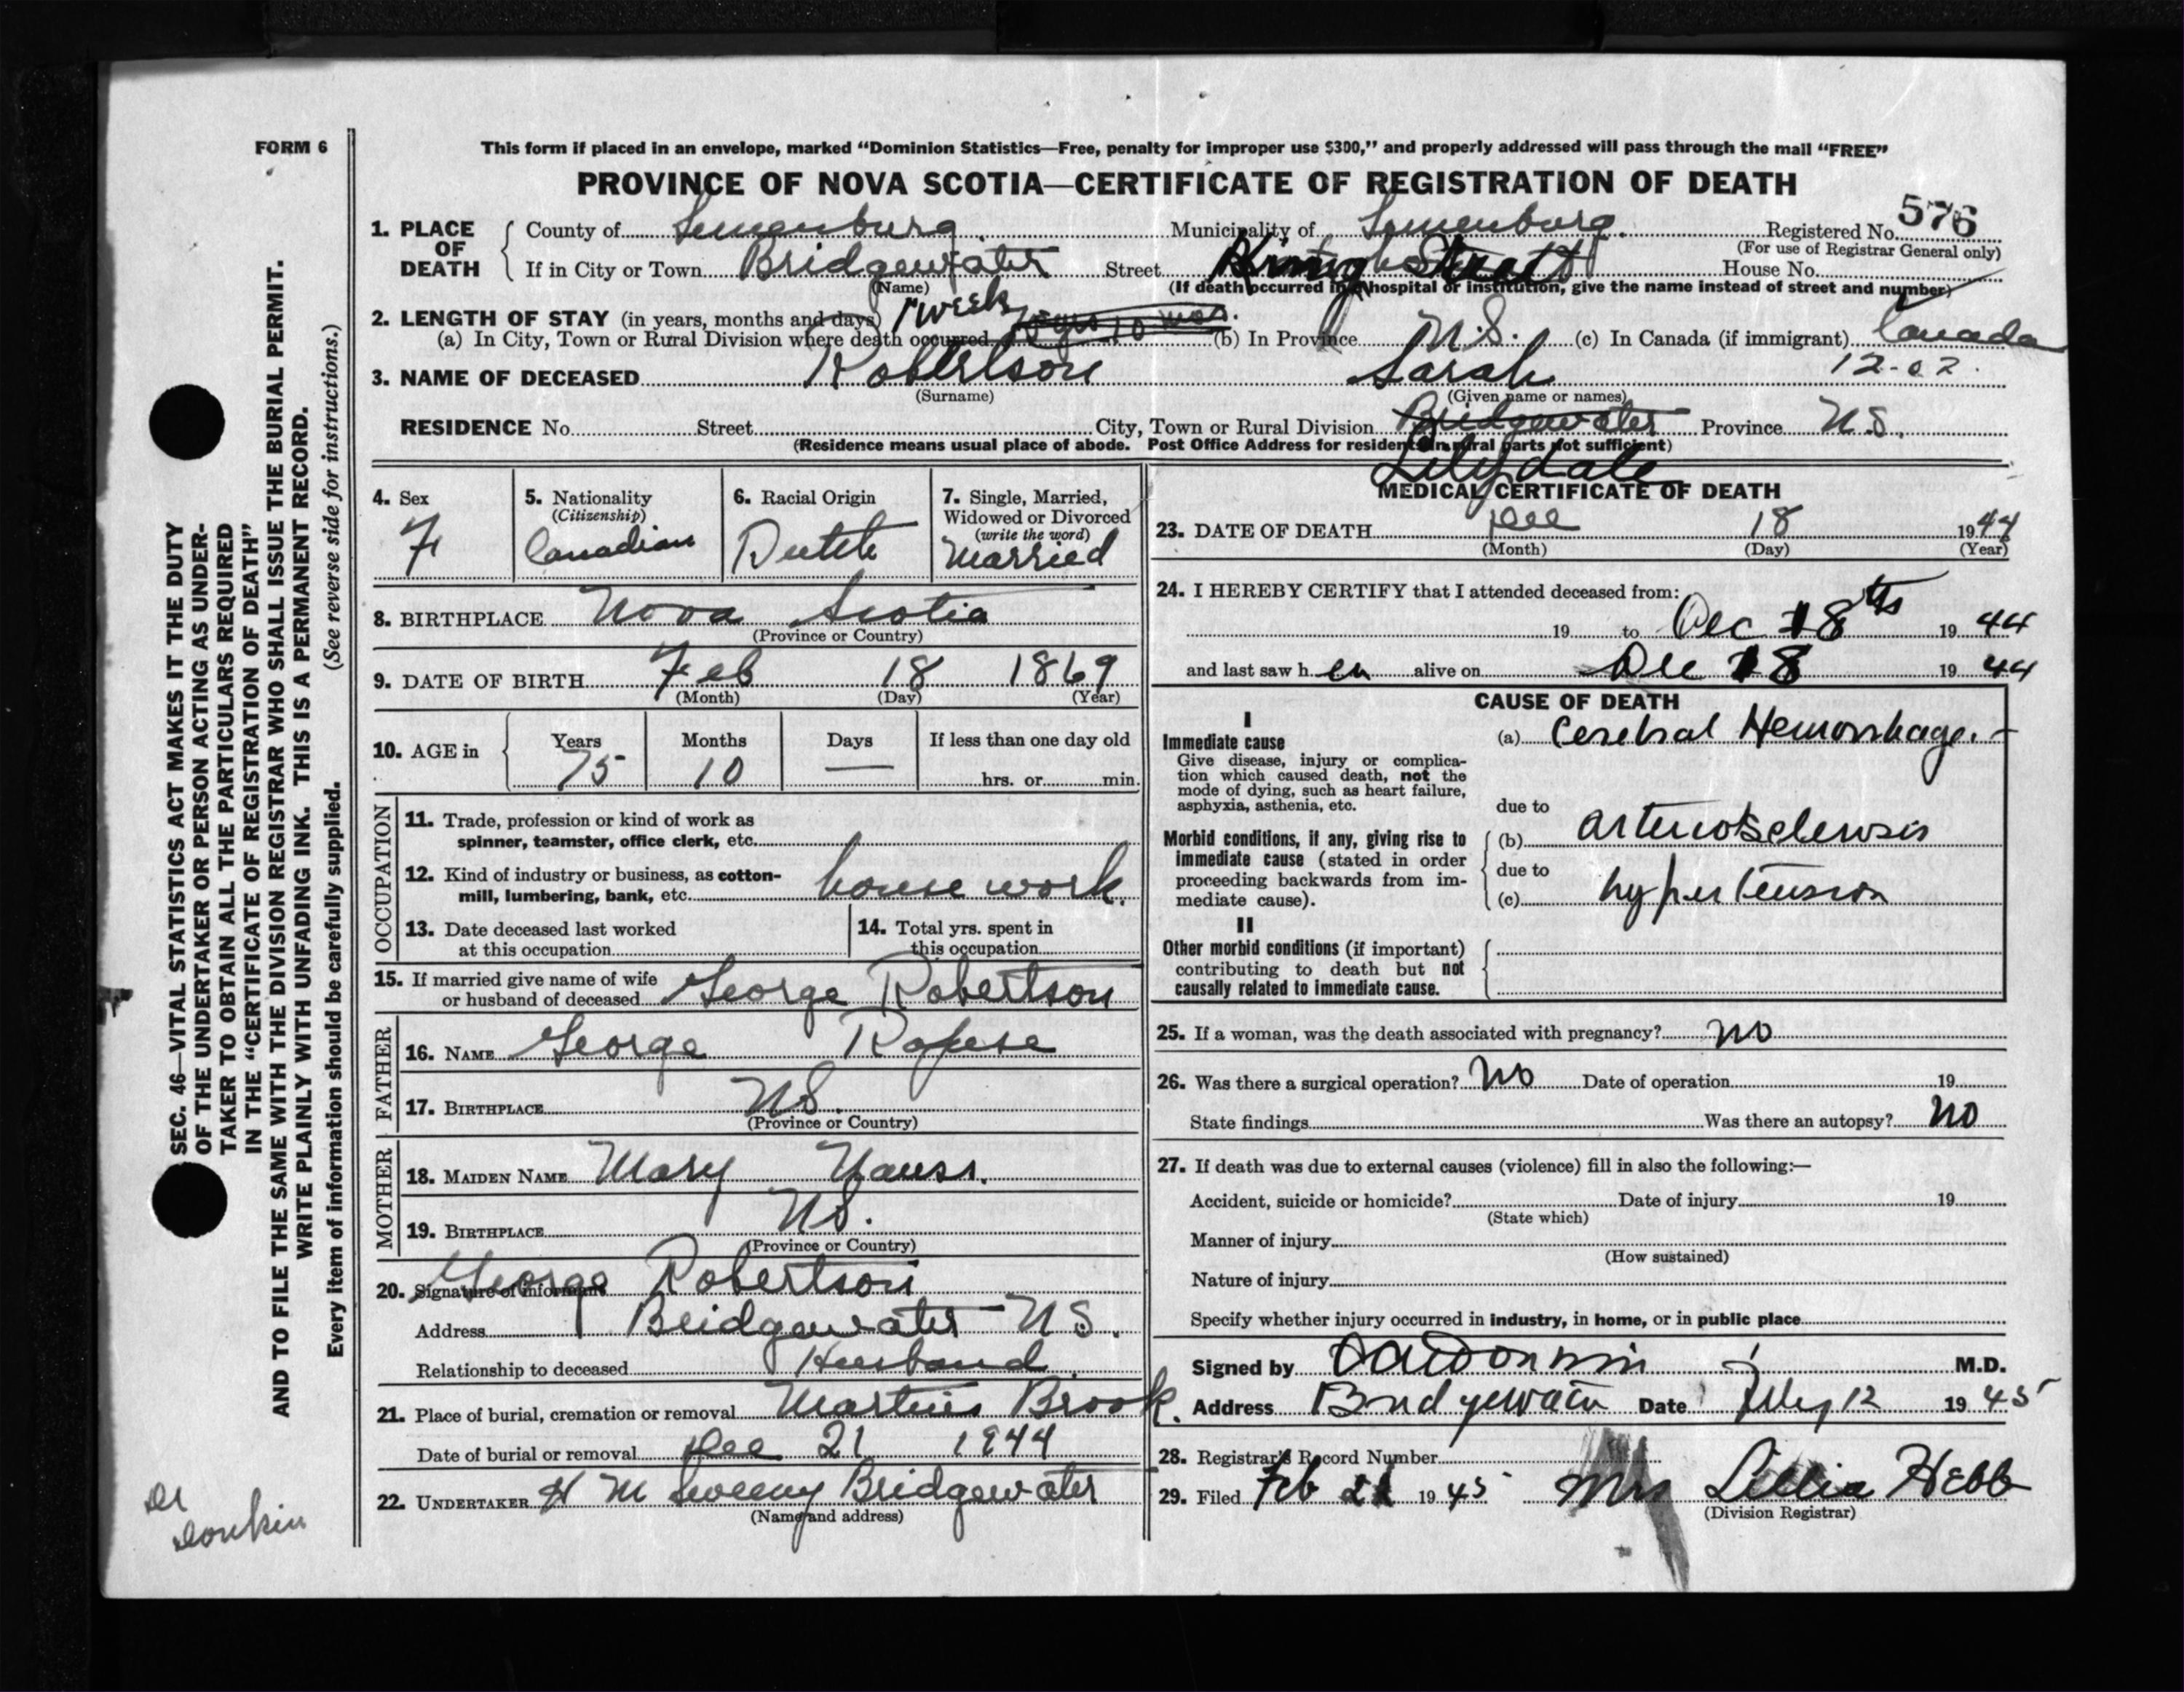 FORM 6
This form if placed in an envelope, marked "Dominion Statistics—Free, penalty for improper use $300," and properly addressed will pass through the mail "FREE"
PROVINCE OF NOVA SCOTIA—CERTIFICATE OF REGISTRATION OF DEATH
576
1. PLACE OF DEATH
County of Lunenburg Municipality of Lunenburg. Registered No.
(For use of Registrar General only)
If in City or Town Bridgewater Street King Street House No.
(Name) (If death occurred in a hospital or institution, give the name instead of street and number)
2. LENGTH OF STAY (in years, months and days) 1 week
(a) In City, Town or Rural Division where death occurred 10 mos. (b) In Province N.S. (c) In Canada (if immigrant) Canada
12-02.
3. NAME OF DECEASED Robertson Sarah
(Surname) (Given name or names)
RESIDENCE No. Street City, Town or Rural Division Bridgewater Province N.S.
(Residence means usual place of abode. Post Office Address for residents in rural parts not sufficient)
Lilydale
4. Sex F
5. Nationality (Citizenship) Canadian
6. Racial Origin Dutch
7. Single, Married, Widowed or Divorced (write the word) Married
8. BIRTHPLACE Nova Scotia
(Province or Country)
9. DATE OF BIRTH Feb 18 1869
(Month) (Day) (Year)
10. AGE in Years 75 Months 10 Days — If less than one day old hrs. or min.
OCCUPATION
11. Trade, profession or kind of work as
spinner, teamster, office clerk, etc.
12. Kind of industry or business, as cotton-
mill, lumbering, bank, etc. house work.
13. Date deceased last worked
at this occupation
14. Total yrs. spent in
this occupation
15. If married give name of wife
or husband of deceased George Robertson
FATHER
16. NAME George
17. BIRTHPLACE N.S.
(Province or Country)
MOTHER
18. MAIDEN NAME Mary Nauss.
19. BIRTHPLACE N.S.
(Province or Country)
20. Signature of informant George Robertson
Address Bridgewater N.S.
Relationship to deceased Husband
21. Place of burial, cremation or removal Martins Brook.
Date of burial or removal Dec 21 1944
22. UNDERTAKER H M Sweeny Bridgewater
(Name and address)
MEDICAL CERTIFICATE OF DEATH
23. DATE OF DEATH Dec 18 1944
(Month) (Day) (Year)
24. I HEREBY CERTIFY that I attended deceased from:
19 to Dec 18th 19 44
and last saw h er alive on Dec 18 19 44
CAUSE OF DEATH
I
Immediate cause
Give disease, injury or complica-
tion which caused death, not the
mode of dying, such as heart failure,
asphyxia, asthenia, etc.
(a) Cerebral Hemorrhage.
due to
Morbid conditions, if any, giving rise to
immediate cause (stated in order
proceeding backwards from im-
mediate cause).
(b) arteriosclerosis
due to
(c) hypertension
II
Other morbid conditions (if important)
contributing to death but not
causally related to immediate cause.
25. If a woman, was the death associated with pregnancy? no
26. Was there a surgical operation? No Date of operation 19
State findings Was there an autopsy? no
27. If death was due to external causes (violence) fill in also the following:—
Accident, suicide or homicide? Date of injury 19
(State which)
Manner of injury
(How sustained)
Nature of injury
Specify whether injury occurred in industry, in home, or in public place
Signed by M.D.
Address Bridgewater Date Feby 12 19 45
28. Registrar's Record Number
29. Filed Feb 21 19 45 Mrs Lillia Hebb
(Division Registrar)
SEC. 46—VITAL STATISTICS ACT MAKES IT THE DUTY
OF THE UNDERTAKER OR PERSON ACTING AS UNDER-
TAKER TO OBTAIN ALL THE PARTICULARS REQUIRED
IN THE "CERTIFICATE OF REGISTRATION OF DEATH"
AND TO FILE THE SAME WITH THE DIVISION REGISTRAR WHO SHALL ISSUE THE BURIAL PERMIT.
WRITE PLAINLY WITH UNFADING INK. THIS IS A PERMANENT RECORD.
Every item of information should be carefully supplied. (See reverse side for instructions.)
Dr
Donkin